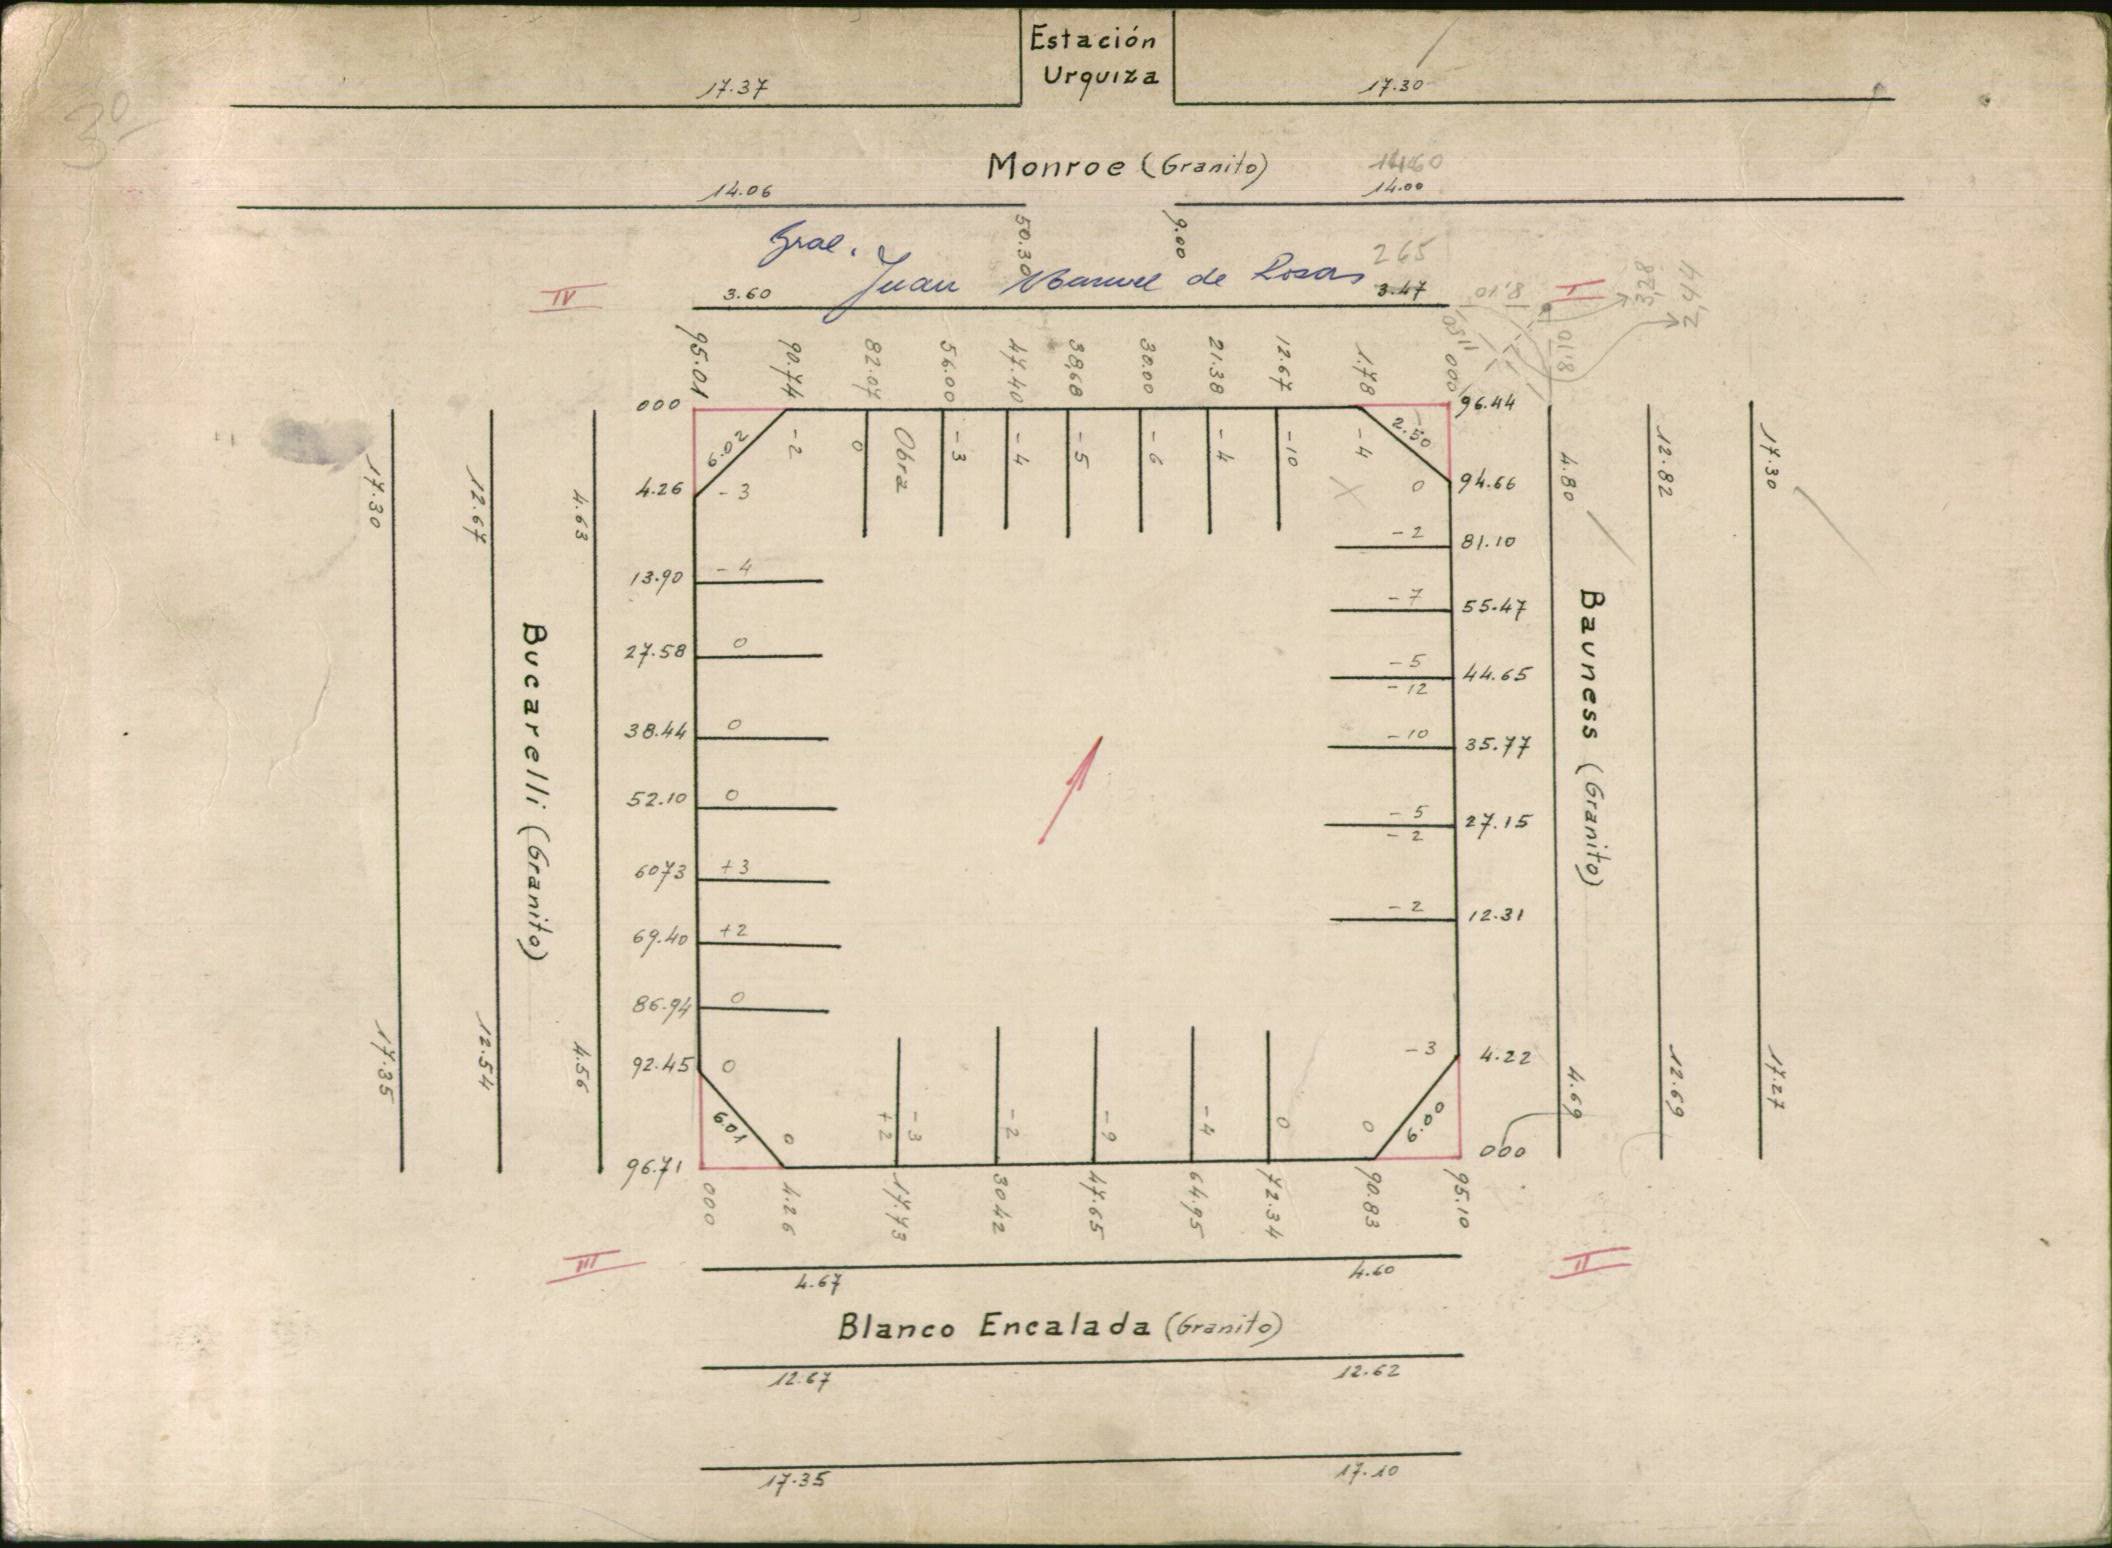 Estación
Urquiza
17.37
17.30
3º
Monroe (Granito)
14.60
14.06
14.00
50.30
9.00
Gral.
Juan Manuel de Rosas
265
3.60
3.47
IV
I
8.10
8.10
11.50
3,28
2,44
95.01
90.74
82.07
56.00
47.40
38.68
30.00
21.38
12.67
1.78
000
000
96.44
6.02
-2
0
Obra
-3
-4
-5
-6
-4
-10
-4
2.50
4.26
-3
0
94.66
X
-2
81.10
13.90
-4
-7
55.47
27.58
0
-5
44.65
-12
38.44
0
-10
35.77
52.10
0
-5
27.15
-2
6073
+3
-2
12.31
69.40
+2
86.94
0
92.45
0
-3
4.22
6.01
0
+2
-3
-2
-9
-4
0
0
6.00
96.71
000
000
4.26
17.73
30.42
47.65
64.95
72.34
90.83
95.10
17.30
12.67
4.63
Bucarelli (Granito)
17.35
12.54
4.56
4.80
12.82
17.30
Bauness (Granito)
4.69
12.69
17.27
III
II
4.67
4.60
Blanco Encalada (Granito)
12.67
12.62
17.35
17.10